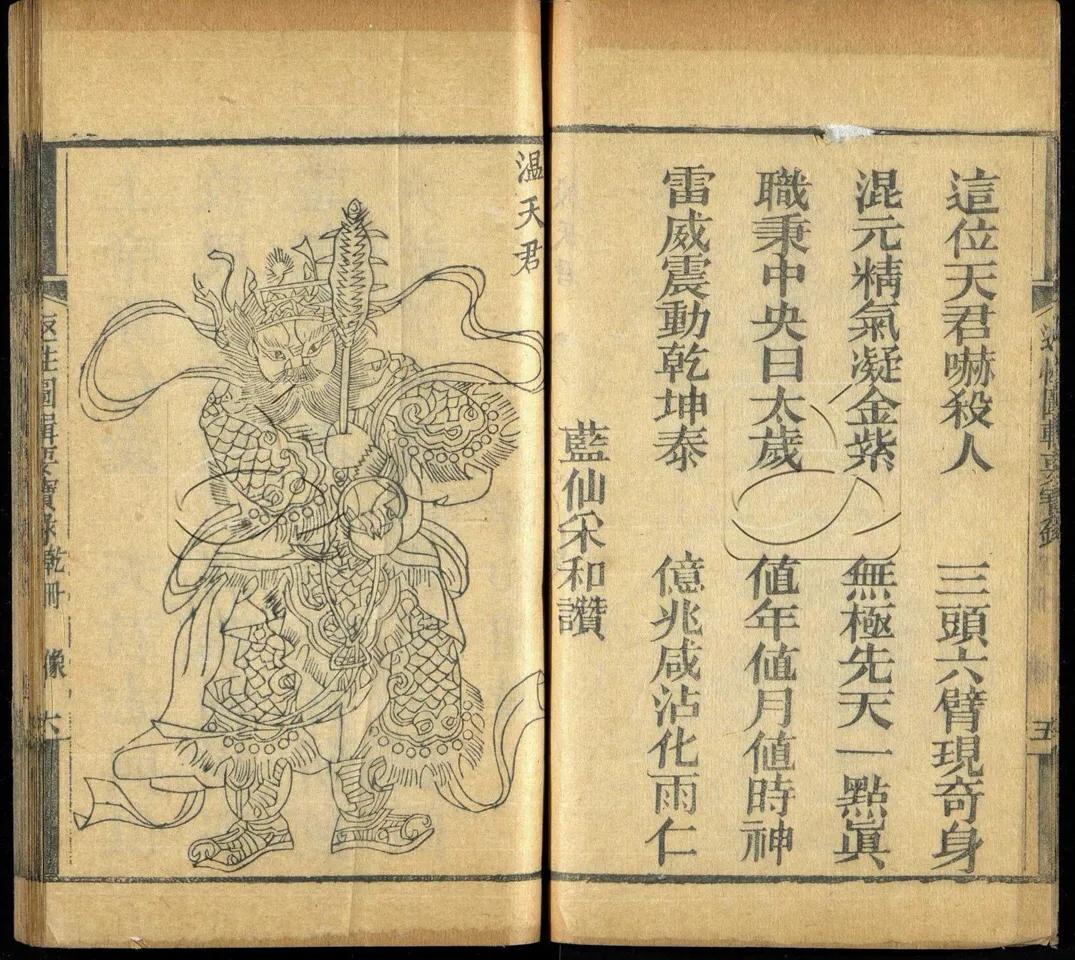 五
這位天君嚇殺人　三頭六臂現奇身
混元精氣凝金紫　無極先天一點眞
職秉中央曰太歲　値年値月値時神
雷威震動乾坤泰　億兆咸沾化雨仁
藍仙采和讚
温天君
返性圖輯要寶錄乾冊　像　六